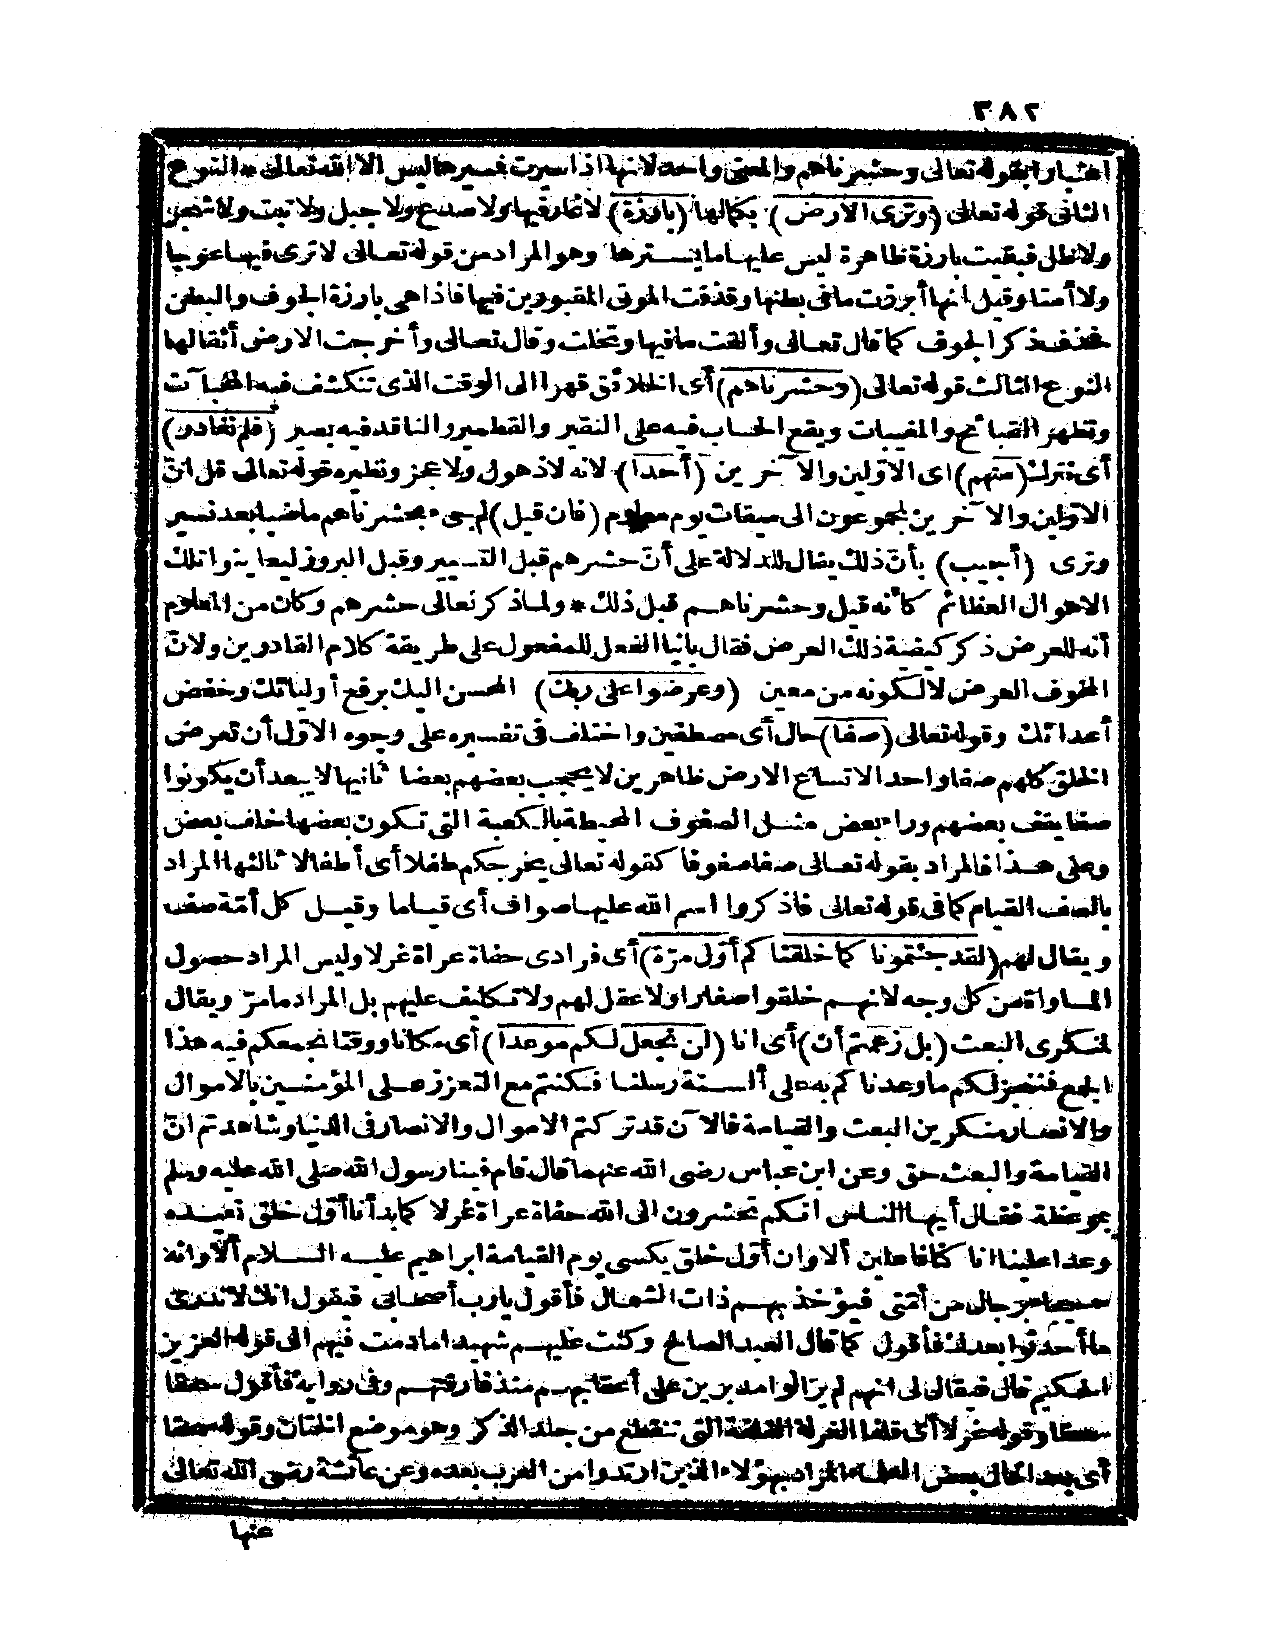 ٣٨٢
اعتبارا بقوله تعالى وحشرناهم والمعنى واحد لانها اذا سيرت فمسيرها ليس الا الله تعالى * النوع
الثانى قوله تعالى (وترى الارض) بكمالها (بارزة) لا غار فيها ولا صدع ولا جبل ولا نبت ولا شجر
ولا ظل فبقيت بارزة ظاهرة ليس عليها ما يسترها وهو المراد من قوله تعالى لا ترى فيها عوجا
ولا أمتا وقيل انها أبرزت ما فى بطنها وقذفت الموتى المقبورين فيها فاذا هى بارزة الجوف والبطن
فحذف ذكر الجوف كما قال تعالى وألقت ما فيها وتخلت وقال تعالى وأخرجت الارض أثقالها
النوع الثالث قوله تعالى (وحشرناهم) أى الخلائق قهرا الى الوقت الذى تنكشف فيه المخبآت
وتظهر القبائح والمغيبات ويقع الحساب فيه على النقير والقطمير والناقد فيه بصير (فلم نغادر)
أى نترك (منهم) اى الاوّلين والآخرين (أحدا) لانه لا ذهول ولا عجز ونظيره قوله تعالى قل انّ
الاوّلين والآخرين لمجموعون الى ميقات يوم معلوم (فان قيل) لم جىء بحشرناهم ماضيا بعد نسير
وترى (أجيب) بأنّ ذلك يقال للدلالة على أنّ حشرهم قبل التسيير وقبل البروز ليعاينوا تلك
الاهوال العظائم كأنه قيل وحشرناهم قبل ذلك * ولما ذكر تعالى حشرهم وكان من المعلوم
أنه للعرض ذكر كيفية ذلك العرض فقال بانيا الفعل للمفعول على طريقة كلام القادرين ولانّ
المخوف العرض لا لكونه من معين (وعرضوا على ربك) المحسن اليك برفع أوليائك وخفض
أعدائك وقوله تعالى (صفا) حال أى مصطفين واختلف فى تفسيره على وجوه الاوّل أن تعرض
الخلق كلهم صفا واحدا لاتساع الارض ظاهرين لا يحجب بعضهم بعضا ثانيها لا يبعد أن يكونوا
صفا يقف بعضهم وراء بعض مثل الصفوف المحيطة بالكعبة التى تكون بعضها خلف بعض
وعلى هذا فالمراد بقوله تعالى صفا صفوفا كقوله تعالى يخرجكم طفلا أى أطفالا ثالثها المراد
بالصف القيام كما فى قوله تعالى فاذكروا اسم الله عليها صواف أى قياما وقيل كل أمّة صف
ويقال لهم (لقد جئتمونا كما خلقناكم أوّل مرّة) أى فرادى حفاة عراة غرلا وليس المراد حصول
المساواة من كل وجه لانهم خلقوا صغارا ولا عقل لهم ولا تكليف عليهم بل المراد ما مرّ ويقال
لمنكرى البعث (بل زعمتم أن) أى انا (لن نجعل لكم موعدا) أى مكانا ووقتا نجمعكم فيه هذا
الجمع فننجز لكم ما وعدناكم به على ألسنة رسلنا فكنتم مع التعزز على المؤمنين بالاموال
والانصار منكرين البعث والقيامة فالآن قد تركتم الاموال والانصار فى الدنيا وشاهدتم انّ
القيامة والبعث حق وعن ابن عباس رضى الله عنهما قال قام فينا رسول الله صلى الله عليه وسلم
بموعظة فقال أيها الناس انكم تحشرون الى الله حفاة عراة غرلا كما بدأنا أوّل خلق نعيده
وعدا علينا انا كنا فاعلين ألا وان أوّل خلق يكسى يوم القيامة ابراهيم عليه السلام ألا وانه
سيجاء برجال من أمّتى فيؤخذ بهم ذات الشمال فأقول يارب أصحابى فيقول انك لا تدرى
ما أحدثوا بعدك فأقول كما قال العبد الصالح وكنت عليهم شهيدا ما دمت فيهم الى قوله العزيز
الحكيم قال فيقال لى انهم لم يزالوا مدبرين على أعقابهم منذ فارقتهم وفى رواية فأقول سحقا
سحقا وقوله غرلا أى قلفا الغرلة القلفة التى تنقطع من جلد الذكر وهو موضع الختان وقوله سحقا
أى بعدا قال بعض العلماء المراد بهؤلاء الذين ارتدوا من العرب بعده وعن عائشة رضى الله تعالى
عنها